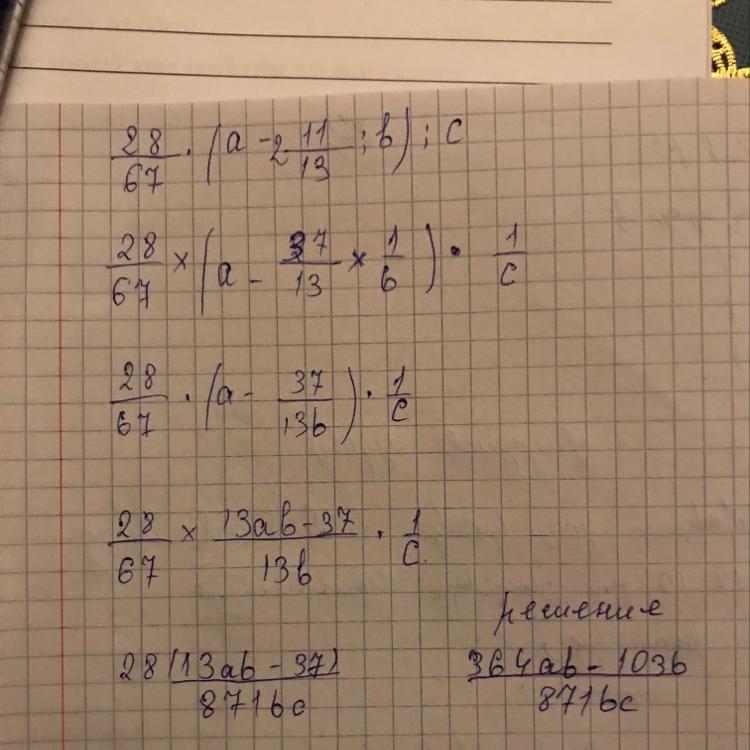 28/67 · (a - 2 11/13 : b) : c
28/67 × (a - 37/13 × 1/b) · 1/c
28/67 · (a - 37/13b) · 1/c
28/67 × 13ab-37/13b · 1/c
решение
28(13ab - 37)/871bc 364ab - 1036/871bc